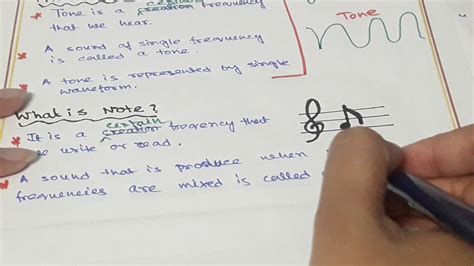 Tone is a certain creation frequency
that we hear.
A sound of single frequency
is called a tone.
A tone is represented by single
waveform.
Tone
What is Note?
certain
It is a creation freqrency that
we write or read.
A sound that is produce when
frequencies are mixed is called